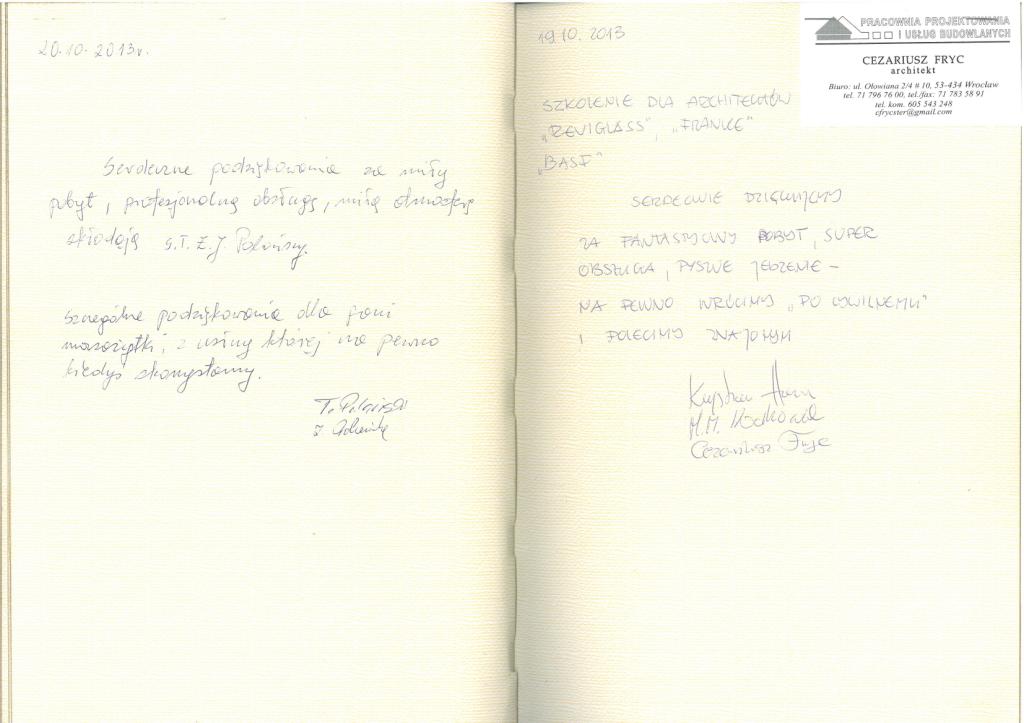 20.10.2013r.
Serdeczne podziękowania za miły
pobyt, profesjonalną obsługę, miłą atmosferę
składają
Szczególne podziękowania dla pani
masażystki, z usług której na pewno
kiedyś skorzystamy.
19.10.2013
SZKOLENIE DLA ARCHITEKTÓW
„REVIGLASS", „FRANKE"
„BASF"
SERDECZNIE DZIĘKUJEMY
ZA FANTASTYCZNY POBYT, SUPER
OBSŁUGA, PYSZNE JEDZENIE –
NA PEWNO WRÓCIMY „PO CYWILNEMU"
I POLECIMY ZNAJOMYM
Cezariusz Fryc
PRACOWNIA PROJEKTOWANIA
I USŁUG BUDOWLANYCH
CEZARIUSZ FRYC
architekt
Biuro: ul. Ołowiana 2/4 # 10, 53-434 Wrocław
tel. 71 796 76 00, tel./fax: 71 783 58 91
tel. kom. 605 543 248
cfrycster@gmail.com